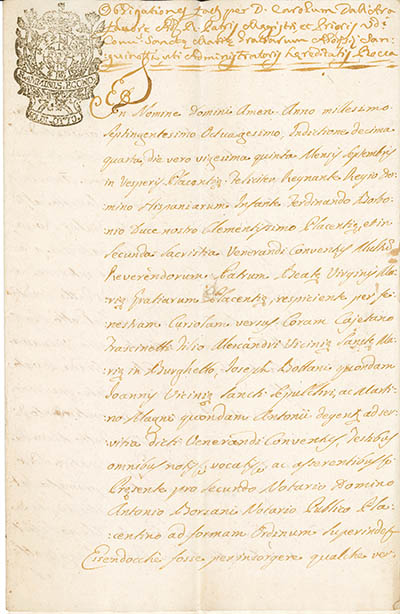 Obligationes factæ per D. Carolum
Adm. R. Patris Magistri et Prioris
Conv. Sanctæ Mariæ Gratiarum
uti Administratoris hereditatis Rocca
In Nomine Domini Amen. Anno millesimo
Septingentesimo Octuagesimo, Indictione decima
quarta die vero vigesima quinta Mensis Septembris
in Vesperis Placentiæ. Feliciter Regnante Regio Do-
mino Hispaniarum Infante Ferdinando Borbo-
nio Duce nostro Clementissimo Placentiæ, et in
secunda Sacristia Venerandi Conventus Multo
Reverendorum Patrum Beatæ Virginis Ma-
riæ Gratiarum Placentiæ, respiciente per fe-
nestram versus Coram Cajetano
Frascinetti filio Alexandri Viciniæ Sanctæ Ma-
riæ in Burghetto, Joseph Bottani quondam
Joannis Viciniæ Sancti Sepulchri, ac Marti-
no Magni quondam Antonii degente ad ser-
vitia dicti Venerandi Conventus, testibus
omnibus notis, vocatis, ac asserentibus
Presente pro secundo Notario Domino
Antonio Borsani Notario Publico Pla-
centino ad formam Ordinum super inde
Essendocchè fosse per insorgere qualche ver-